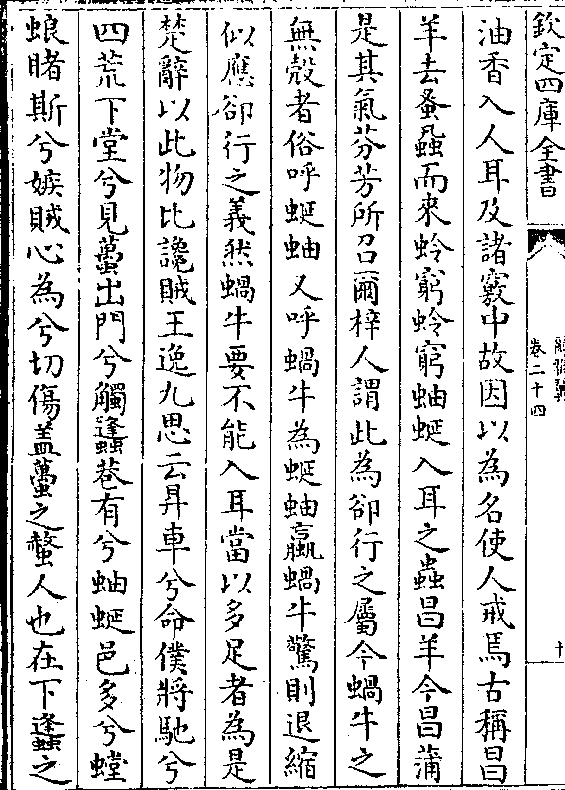 欽定四庫全書
卷二十四
油香入人耳及諸竅中故因以為名使人戒焉古稱昌
羊去蚤蝨而來蛉窮蛉窮蚰蜒入耳之蟲昌羊今昌蒲
是其氣芬芳所召爾梓人謂此為卻行之屬今蝸牛之
無殼者俗呼蜒蚰又呼蝸牛為蜒蚰蠃蝸牛驚則退縮
似應卻行之義然蝸牛要不能入耳當以多足者為是
楚辭以此物比讒賊王逸九思云昇車兮命僕將馳兮
四荒下堂兮見蠆出門兮觸蠭巷有兮蚰蜒邑多兮螳
蜋睹斯兮嫉賊心為兮切傷盖蠆之螫人也在下蠭之